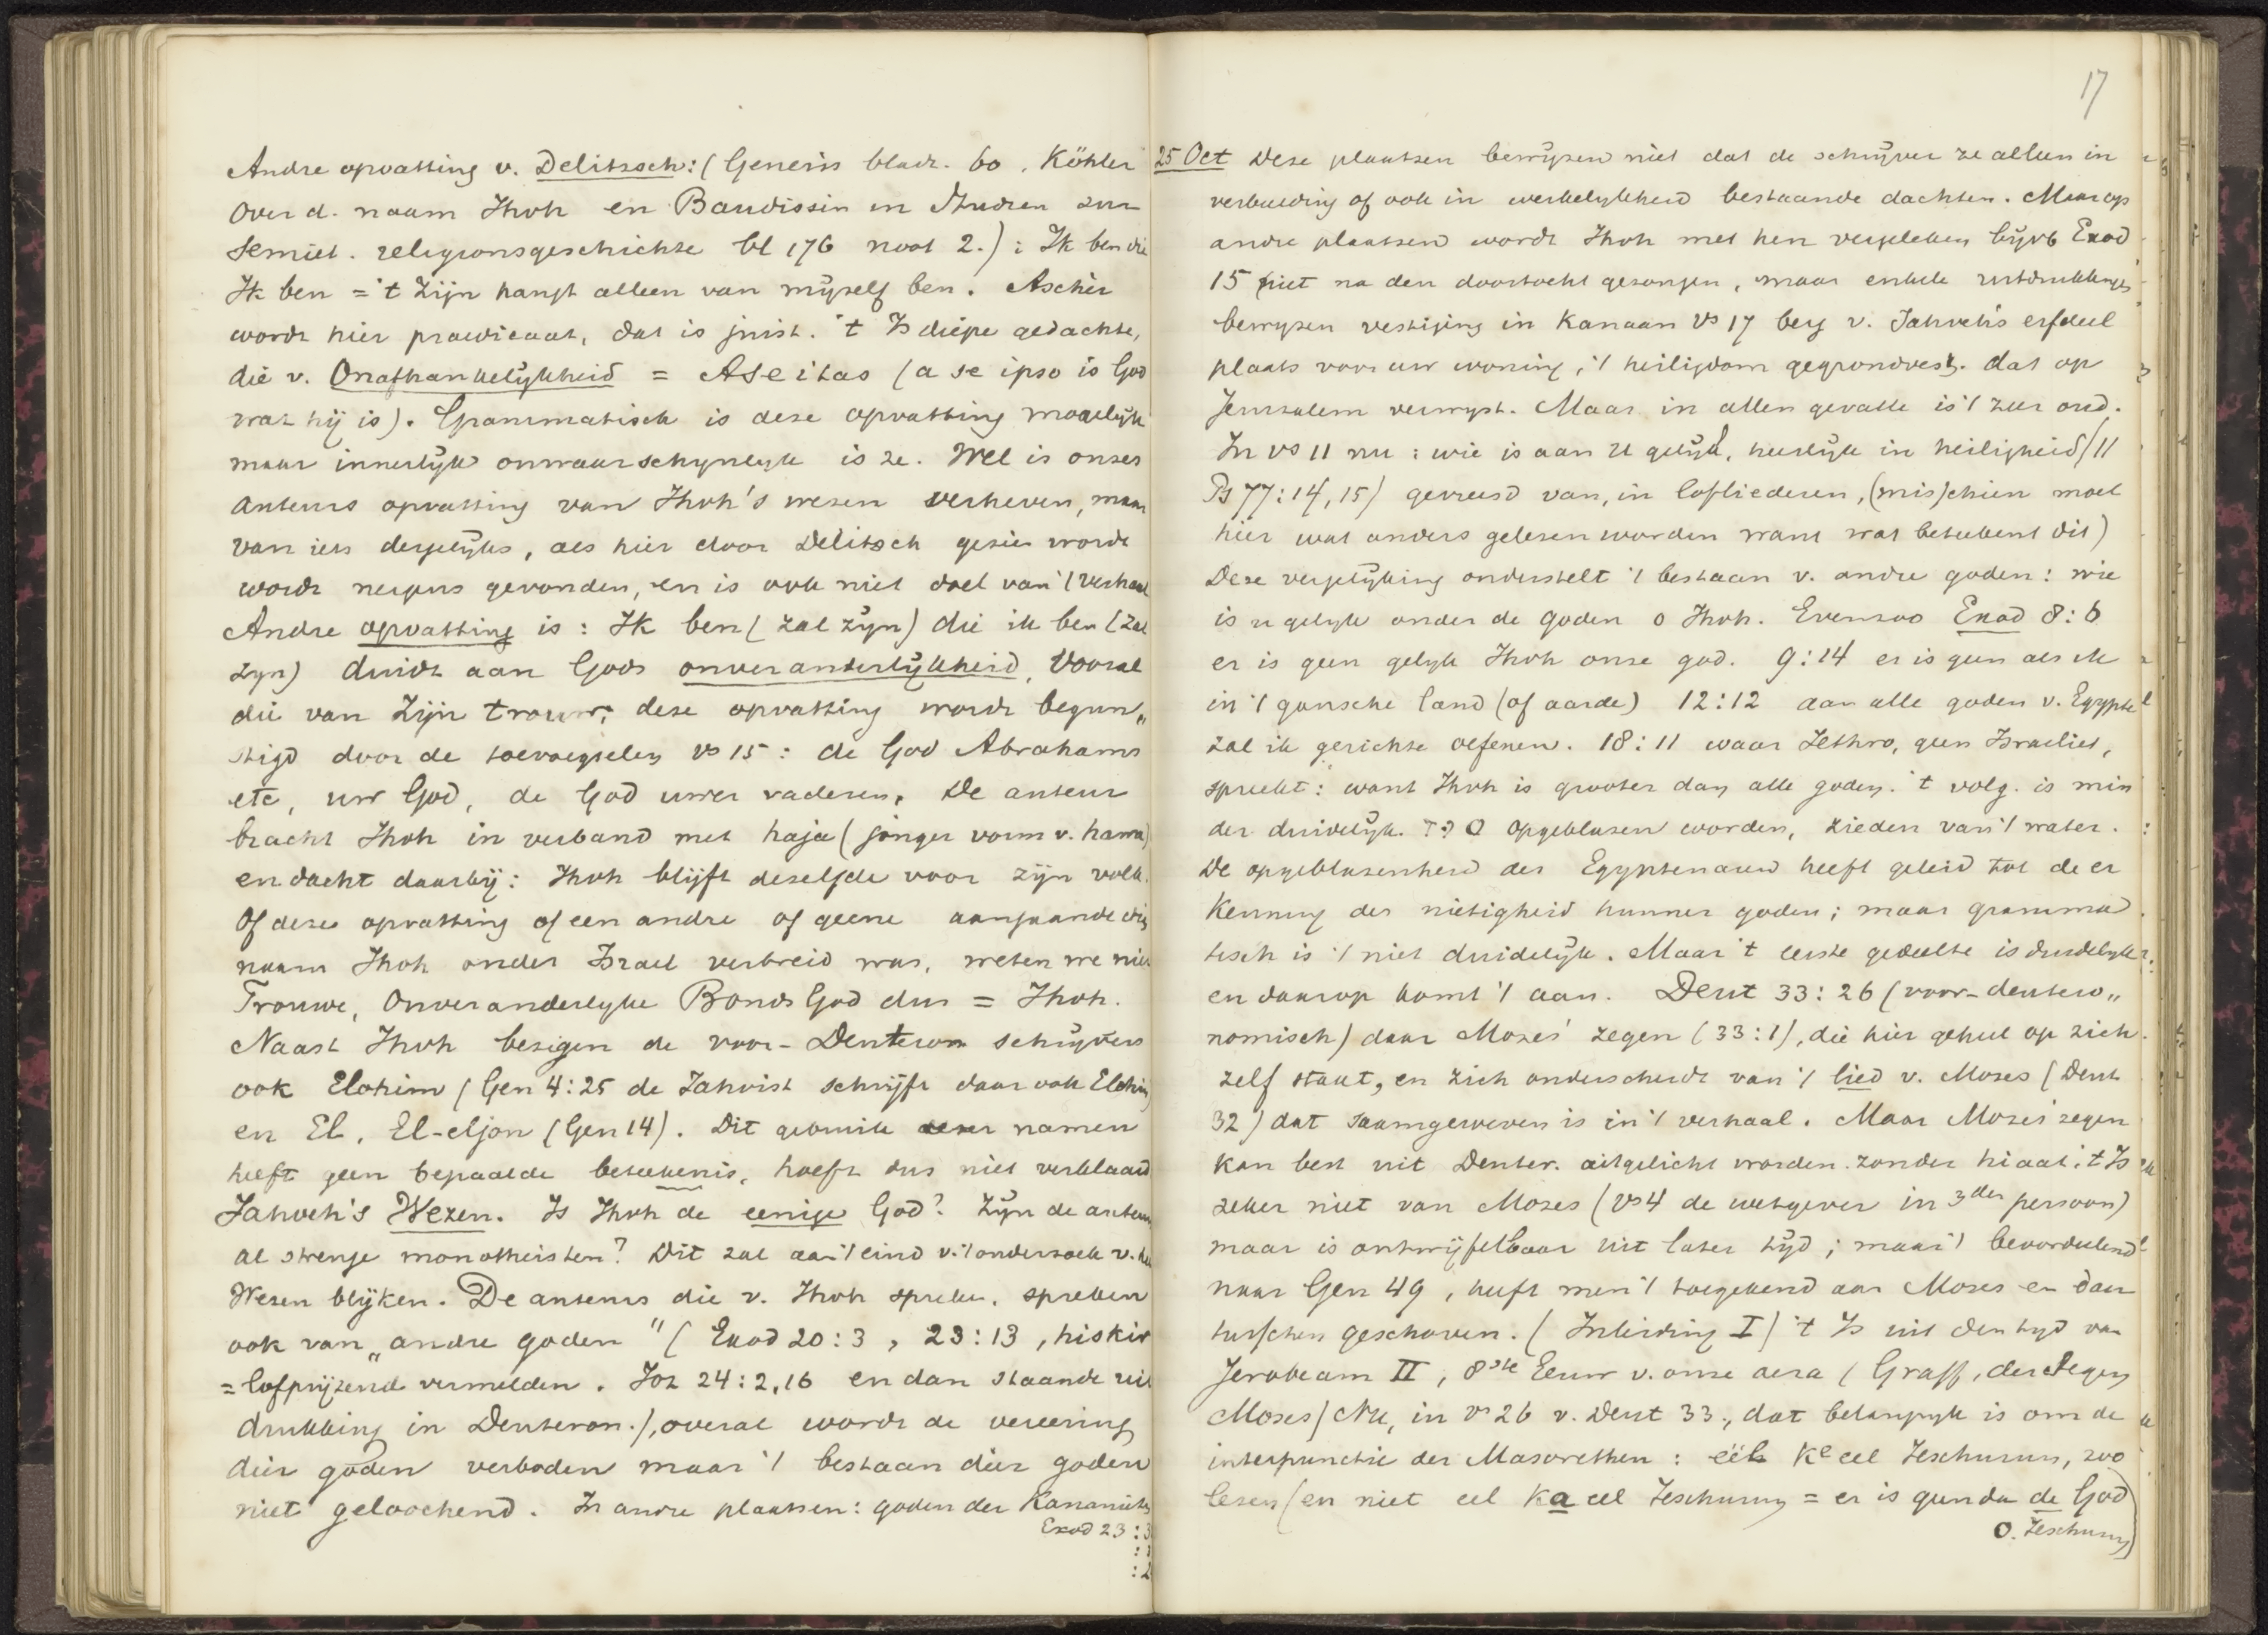 Andre opvatting v. Delitzsch: (Genesis bladz. 60, Köhler
over d. naam Jhvh en Baudissin in Studien zur
semiet. religionsgeschichte bl 176 noot 2.): Ik ben die
Ik ben = 't Zijn hangt alleen van mijzelf ben. Ascher
wordt hier praedicaat, dat is juist. 't Is diepe gedachte,
die v. Onafhankelijkheid = Aseitas (a se ipso is God
wat hij is). Grammatisch is deze opvatting mogelijk
maar innerlijk onwaarschynlyk is ze. Wel is onzes
auteurs opvatting van Jhvh's wezen verheven, maar
van iets dergelijks, als hier door Delitzsch gezien wordt
wordt nergens gevonden, en is ook niet doel van 't verhaal
Andre opvatting is: Ik ben (zal zijn) die ik ben (zal
zyn) duidt aan Gods onveranderlijkheid, vooral
die van Zijn trouw; deze opvatting wordt begun„
stigd door de toevoegselen vs 15: de God Abrahams
etc, uw God, de God uwer vaderen. De auteur
bracht Jhvh in verband met haja (jonger vorm v. hawa)
en dacht daarbij: Jhvh blijft dezelfde voor zijn volk.
Of deze opvatting of een andre of geene aangaande die
naam Jhvh onder Israel verbreid was, weten we niet
Trouwe, Onveranderlyke Bonds God dus = Jhvh.
Naast Jhvh bezigen de voor-Deuteron schrijvers
ook Elohim (Gen 4:25 de Jahvist schrijft daar ook Elohim)
en El, El-eljon (Gen 14). Dit gebruik dezer namen
heeft geen bepaalde beteekenis, hoeft dus niet verklaard
Jahveh's Wezen. Is Jhvh de eenige God? Zijn de auteurs
al strenge monotheisten? Dit zal aan 't eind v. 't onderzoek v. het
Wezen blijken. De auteurs die v. Jhvh spreken, spreken
ook van „andre goden" (Exod 20:3, 23:13, hiskir
= lofprijzend vermelden. Joz 24:2,16 en dan staande uit
drukking in Deuteron.), overal wordt de vereering
dier goden verboden maar 't bestaan dier goden
niet geloochend. In andre plaatsen: goden der Kananieten
Exod 23:3
17
25 Oct Deze plaatsen bewijzen niet dat de schrijver ze alleen in
verbeelding of ook in werkelykheid bestaande dachten. Maar op
andre plaatsen wordt Jhvh met hen vergeleken bijvb Exod
15 (niet na den doortocht gezongen, maar enkele uitdrukkingen
bewyzen vestiging in Kanaan vs 17 berg v. Jahveh's erfdeel
plaats voor uw woning, 't heiligdom gegrondvest. dat op
Jeruzalem verwyst. Maar in allen gevalle is 't zeer oud.
In vs 11 nu: wie is aan U gelijk, heerlijk in heiligheid (11
Ps 77:14,15) gevreesd van, in lofliederen, (misschien moet
hier wat anders gelezen worden want wat beteekent dit)
Deze vergelijking onderstelt 't bestaan v. andre goden: wie
is u gelyk onder de goden o Jhvh. Evenzoo Exod 8:6
er is geen gelyk Jhvh onze god. 9:14 er is geen als ik
in 't gansche land (of aarde) 12:12 aan alle goden v. Egypte
zal ik gerichte oefenen. 18:11 waar Jethro, geen Israeliet,
spreekt: want Jhvh is grooter dan alle goden. 't volg. is min
der duidelijk. opgeblazen worden, zieden van 't water.
De opgeblazenheid der Egyptenaren heeft geleid tot de er
kenning der nietigheid hunner goden; maar gramma
tisch is 't niet duidelijk. Maar 't eerste gedeelte is duidelyk
en daarop komt 't aan. Deut 33:26 (voor-deutero„
nomisch) daar Mozes' zegen (33:1), die hier geheel op zich
zelf staat, en zich onderscheidt van 't lied v. Mozes (Deut
32) dat saamgeweven is in 't verhaal. Maar Mozes' zegen
kan best uit Deuter. uitgelicht worden zonder hiaat. 't Is
zeker niet van Mozes (vs 4 de wetgever in 3den persoon)
maar is ontwijfelbaar uit later tijd; maar 't bevoordeelend
naar Gen 49, heeft men 't toegekend aan Mozes en dan
tusschen geschoven. (Inleiding I) 't Is uit den tyd van
Jerobeam II, 8ste Eeuw v. onze aera (Graff, der Segen
Moses) Nu, in vs 26 v. Deut 33, dat belangryk is om de
interpunctie der Masorethen: één ke eel Jeschurun, zoo
lezen (en niet eel ka eel Jeschurun = er is geen dan de God
o. Jeschurun)